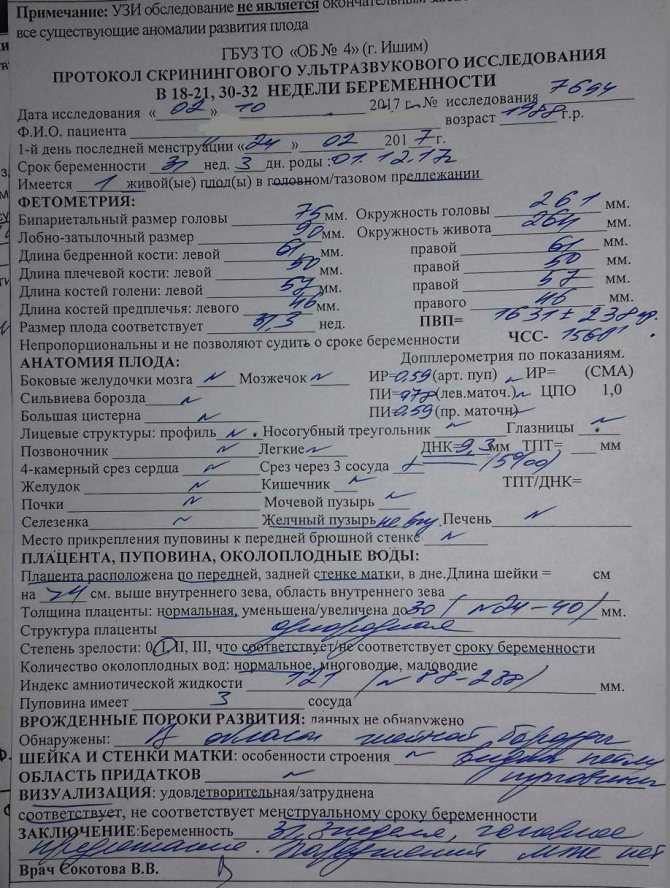 Примечание: УЗИ обследование не является окончательным
все существующие аномалии развития плода
ГБУЗ ТО «ОБ № 4» (г. Ишим)
ПРОТОКОЛ СКРИНИНГОВОГО УЛЬТРАЗВУКОВОГО ИССЛЕДОВАНИЯ
В 18-21, 30-32 НЕДЕЛИ БЕРЕМЕННОСТИ
Дата исследования «02» 10 2017 г. № исследования 7694
Ф.И.О. пациента возраст 1988 г.р.
1-й день последней менструации «24» 02 2017 г.
Срок беременности 31 нед. 3 дн. роды: 01.12.17г
Имеется 1 живой(ые) плод(ы) в головном/тазовом предлежании
ФЕТОМЕТРИЯ:
Бипариетальный размер головы 75 мм. Окружность головы 261 мм.
Лобно-затылочный размер 90 мм. Окружность живота 264 мм.
Длина бедренной кости: левой 61 мм. правой 61 мм.
Длина плечевой кости: левой 50 мм. правой 50 мм.
Длина костей голени: левой 57 мм. правой 57 мм.
Длина костей предплечья: левого 46 мм. правого 46 мм.
Размер плода соответствует 31,3 нед. ПВП= 1631 ± 238 гр.
Непропорциональны и не позволяют судить о сроке беременности ЧСС-
АНАТОМИЯ ПЛОДА: Допплерометрия по показаниям.
Боковые желудочки мозга N Мозжечок N ИР=0,59 (арт. пуп) N ИР= (СМА)
Сильвиева борозда N ПИ= (лев.маточ.) N ЦПО 1,0
Большая цистерна N ПИ-0.59 (пр. маточн) N
Лицевые структуры: профиль N Носогубный треугольник N Глазницы N
Позвоночник N Легкие N ДНК=9,3мм ТПТ= мм
4-камерный срез сердца N Срез через 3 сосуда
Желудок N Кишечник N ТПТ/ДНК=
Почки N Мочевой пузырь N
Селезенка N Желчный пузырь не Печень N
Место прикрепления пуповины к передней брюшной стенке N
ПЛАЦЕНТА, ПУПОВИНА, ОКОЛОПЛОДНЫЕ ВОДЫ:
Плацента расположена по передней, задней стенке матки, в дне. Длина шейки = см
на >4 см. выше внутреннего зева, область внутреннего зева
Толщина плаценты: нормальная, уменьшена/увеличена до 30 (N 24-40) мм.
Структура плаценты однородная
Степень зрелости: 0, I, II, III, что соответствует/не соответствует сроку беременности
Количество околоплодных вод: нормальное, многоводие, маловодие
Индекс амниотической жидкости 121 (N 88-238) мм.
Пуповина имеет 3 сосуда
ВРОЖДЕННЫЕ ПОРОКИ РАЗВИТИЯ: данных не обнаружено
Обнаружены: В области шейной борозды
ШЕЙКА И СТЕНКИ МАТКИ: особенности строения N видна петля
ОБЛАСТЬ ПРИДАТКОВ N пуповины
ВИЗУАЛИЗАЦИЯ: удовлетворительная/затруднена
соответствует, не соответствует менструальному сроку беременности
ЗАКЛЮЧЕНИЕ: Беременность 31, 3 неделя, головное
предлежание. Нарушений мпк нет
Врач Сокотова В.В.